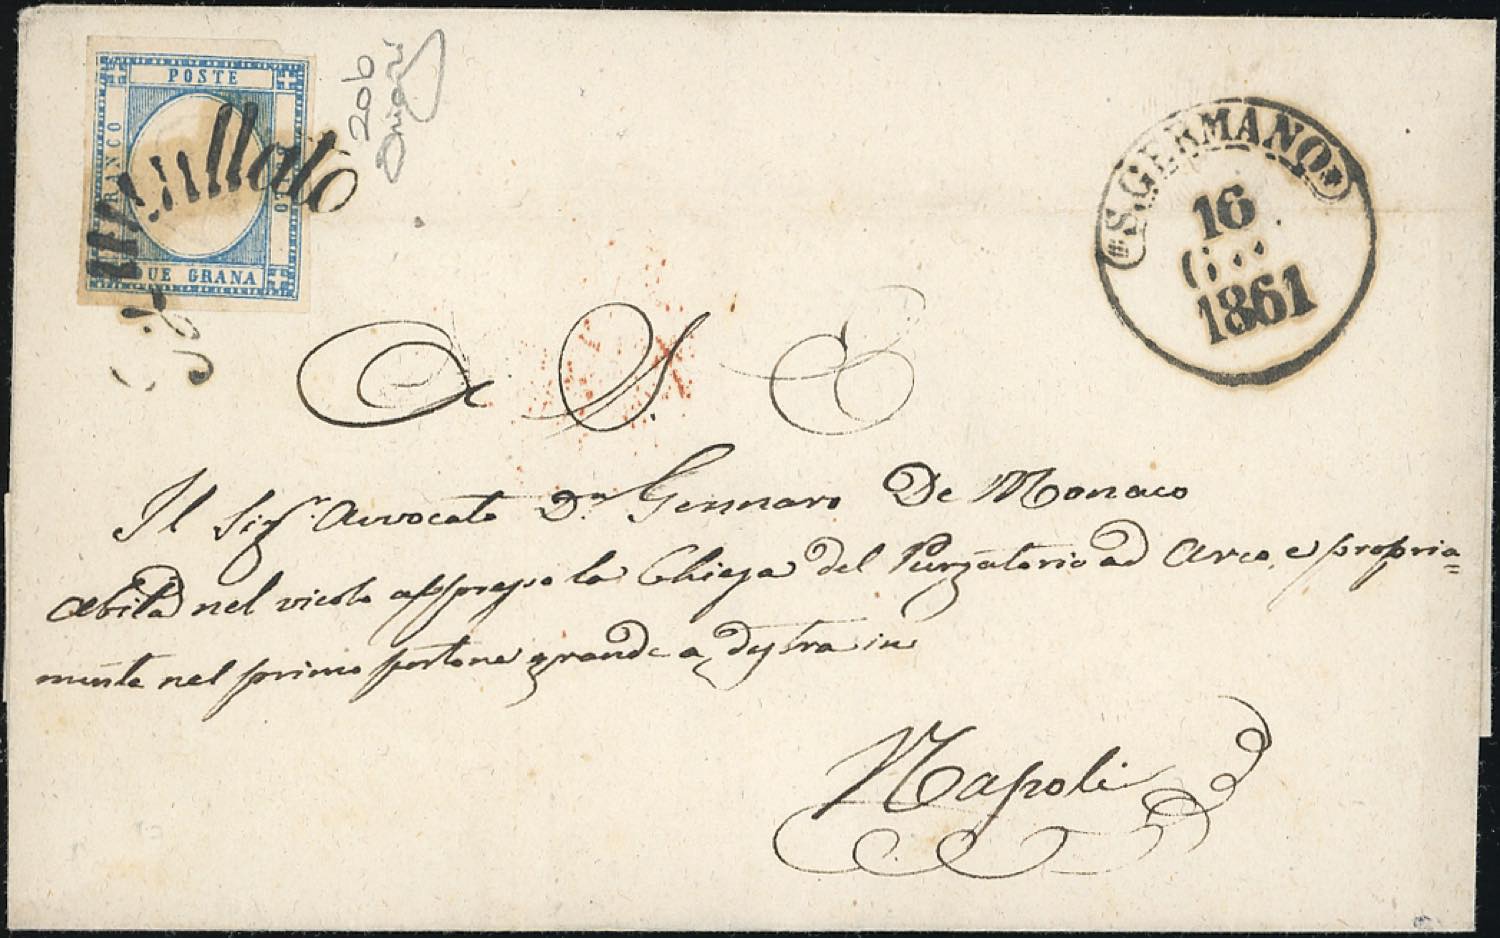 POSTE
FRANCO
BOLLO
DUE GRANA
Annullato
20b
S. GERMANO
16
1861
A S. E.
Il Sig.r Avvocato D.n Gennaro De Monaco
abita nel vicolo appresso la Chiesa del Purgatorio ad Arco, e propria=
mente nel primo portone grande a destra in
Napoli